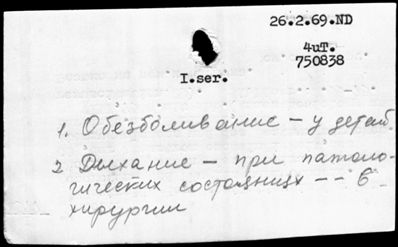 26.2.69.ND
4uT.
750838
I.ser.
1. Обезболивание – у детей.
2 Дыхание – при патоло-
гических состояниях -- в
хирургии